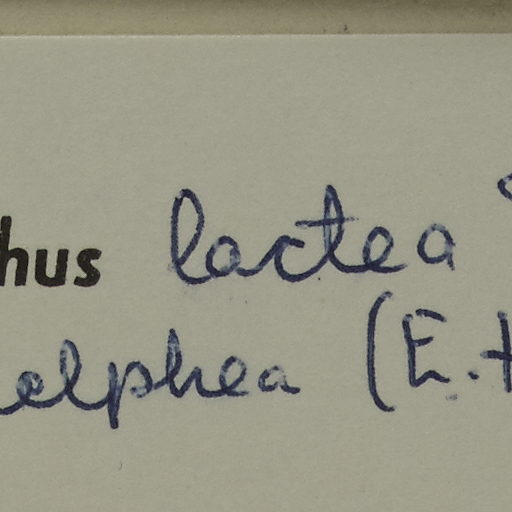 hus lactea
elphea (E.